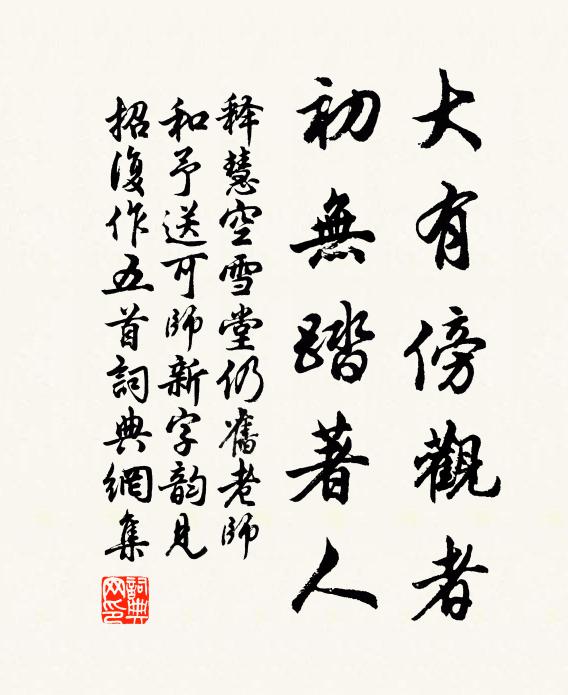 大有傍觀者
初無踏著人
释慧空雪堂仍舊老師
和予送可師新字韵見
招復作五首詞典網集
詞典网印